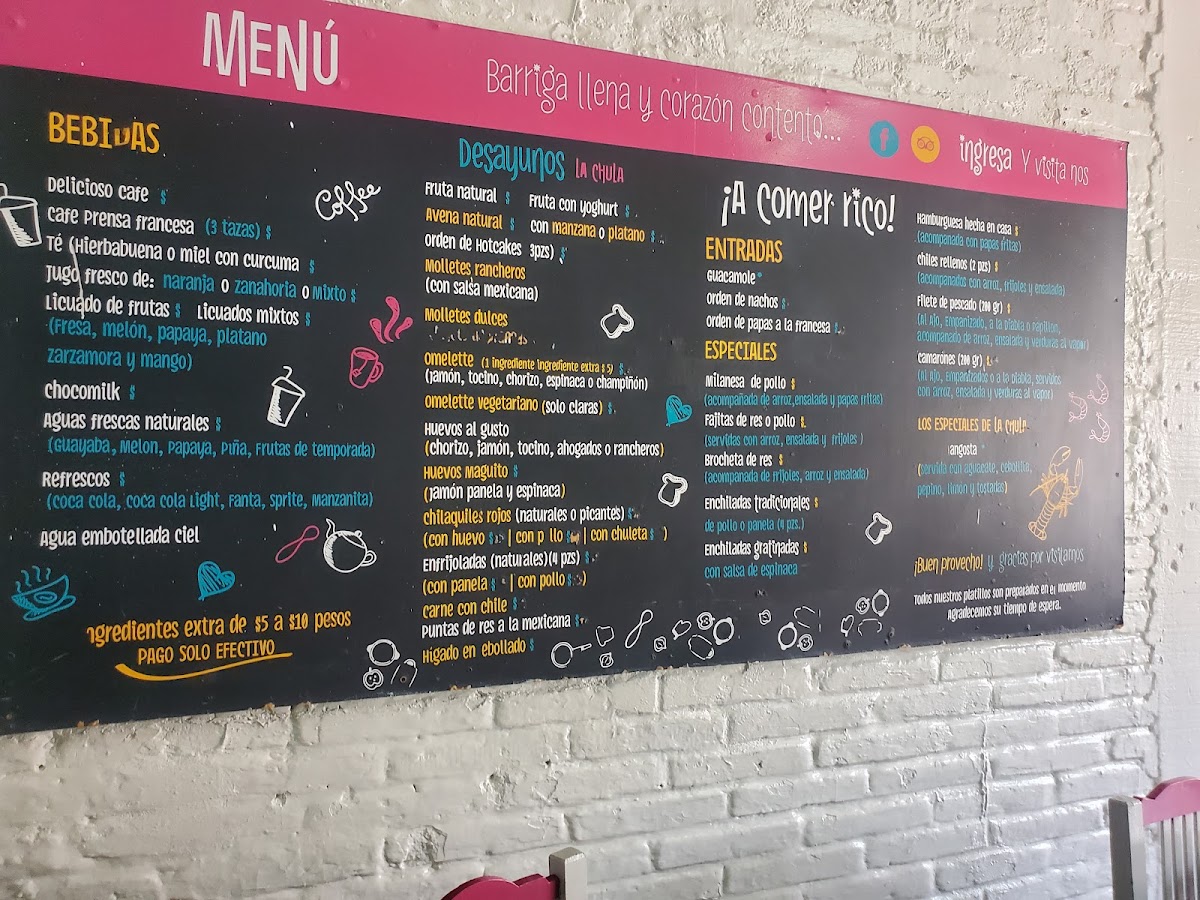 MENÚ
Barriga llena y corazón contento...
f
ingresa Y visita nos
BEBIDAS
Delicioso cafe $
Cafe Prensa francesa (3 tazas) $
Té (Hierbabuena o miel con curcuma $
Jugo fresco de: naranja o zanahoria o Mixto $
Licuado de frutas $ Licuados mixtos $
(Fresa, melón, papaya, platano
zarzamora y mango)
Chocomilk $
Aguas frescas naturales $
(Guayaba, Melon, Papaya, Piña, Frutas de temporada)
Refrescos $
(Coca cola, coca cola light, Fanta, Sprite, Manzanita)
Agua embotellada ciel
Coffee
ngredientes extra de $5 a $10 pesos
PAGO SOLO EFECTIVO
Desayunos LA CHULA
Fruta natural $ Fruta con yoghurt $
Avena natural $ con manzana o platano $
Orden de Hotcakes 3pzs) $
Molletes rancheros
(con salsa mexicana)
Molletes dulces
Omelette (1 ingrediente ingrediente extra $5) $
(jamón, tocino, chorizo, espinaca o champiñón)
Omelette vegetariano (solo claras) $
Huevos al gusto
(chorizo, jamón, tocino, ahogados o rancheros)
Huevos Maguito $
(jamón panela y espinaca)
chilaquiles rojos (naturales o picantes) $
(con huevo $ | con p llo $ | con chuleta $ )
Enfrijoladas (naturales)(4 pzs) $
(con panela $ | con pollo $ )
carne con chile $
Puntas de res a la mexicana $
Higado en ebollado $
¡A comer rico!
ENTRADAS
Guacamole
orden de nachos $
orden de papas a la francesa $
ESPECIALES
Milanesa de pollo $
(acompañada de arroz,ensalada y papas fritas)
Fajitas de res o pollo $
(servidas con arroz, ensalada y frijoles )
Brocheta de res $
(acompanada de frijoles, arroz y ensalada)
Enchiladas tradicionales $
de pollo o panela (4 pzs.)
Enchiladas gratinadas $
con salsa de espinaca
Hamburguesa hecha en casa $
(acompanada con papas fritas)
chiles rellenos (2 pzs) $
(acompanados con arroz, frijoles y ensalada)
Filete de pescado (200 gr) $
(Al Ajo, Empanizado, a la Diabla o Papillon,
acompañado de arroz, ensalada y verduras al vapor)
camarónes (200 gr) $
(Al Ajo, Empanizados o a la Diabla, servidos
con arroz, ensalada y verduras al vapor)
LOS ESPECIALES DE LA CHULA
angosta
(servida con aguacate, cebollita,
pepino, limon y tostadas)
¡Buen provecho! y gracias por visitarnos
Todos nuestros platillos son preparados en el momento
Agradecemos su tiempo de espera.